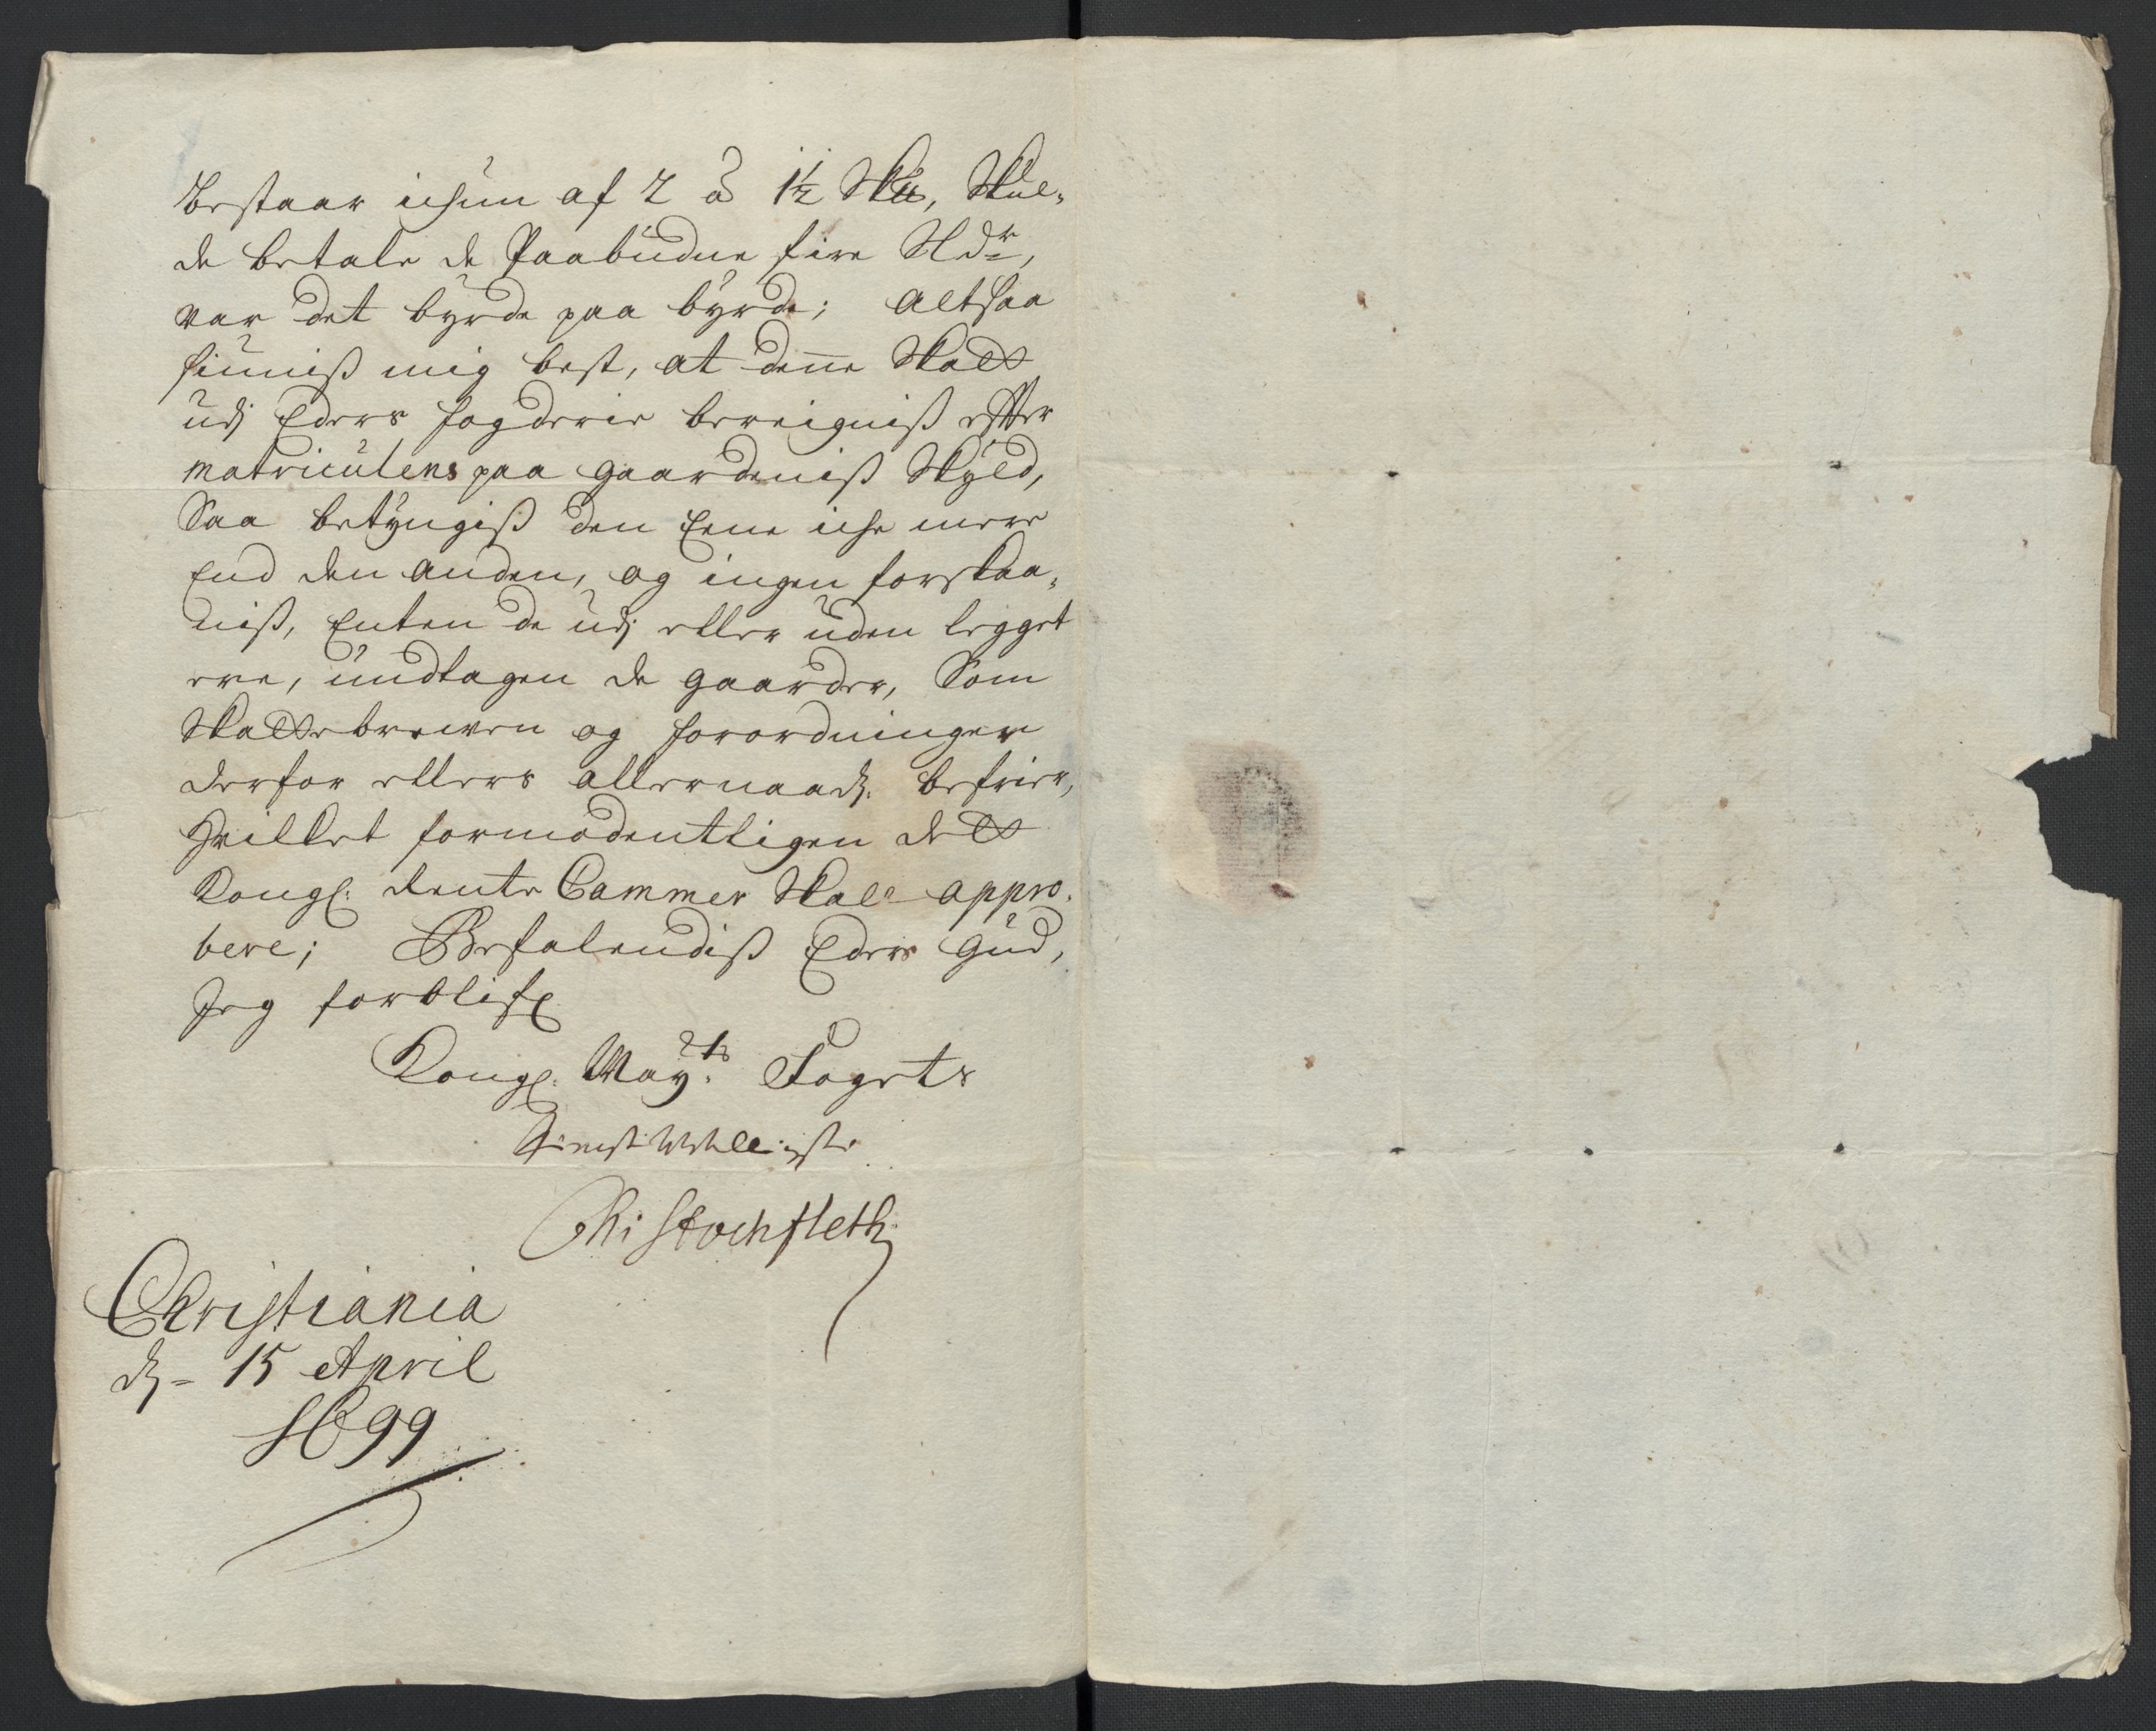 bestaar ichun af 2 à 1½ Skll, Skul-
de betale de Paabudne fire Rdr,
var det byrde paa byrde; altsaa
siuniß mig best, at denne Skatt
udj Eders fogderie bereigniß effter
matriculens paa gaardeniß Skyld,
Saa betyngiß den Eene iche mere
End den anden, og ingen forskaa-
niß, Enten de udj eller uden legget
ere, undtagen de gaarder, Som
Skattebrewen og forordninger
derfor ellers allernaadl. befrier,
Hvilket formodentligen dett
Kongl: Rente Cammer Skal appro-
bere; Befalendiß Eders Gud,
Jeg forblifr
Kongl: Mayts Fogets
Tienstwilligste
Chr: Stochfleth
Christiania
d - 15 April
1699